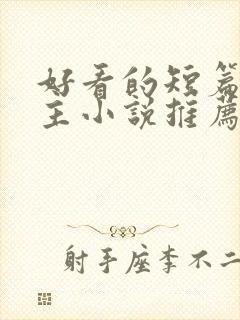 好看的短篇
主小说推薦
射手座李不二